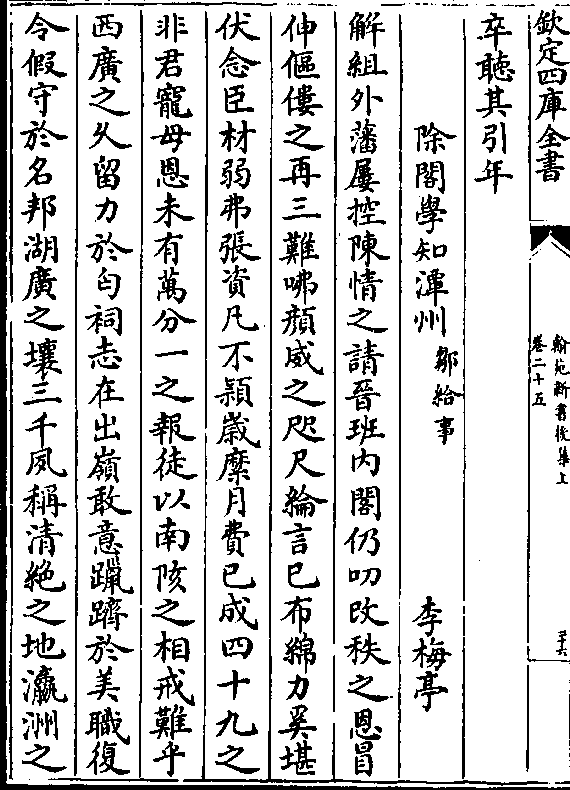 欽定四庫全書
翰苑新書後集上
卷二十五
三十六
卒聽其引年
除閣學知潭州 鄒給事 李梅亭
解組外藩屢控陳情之請晉班内閣仍叨改秩之恩冒
伸傴僂之再三難咈顔威之咫尺綸言已布綿力奚堪
伏念臣材弱弗張資凡不頴嵗糜月費已成四十九之
非君寵母恩未有萬分一之報徒以南陔之相戒難乎
西廣之久留力於匄祠志在出嶺敢意躐躋於美職復
令假守於名邦湖廣之壤三千夙稱清絶之地瀛洲之